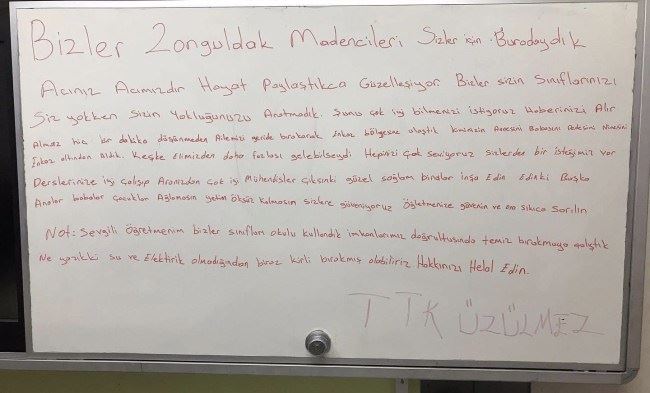 Bizler Zonguldak Madencileri Sizler için Buradaydık
Acınız Acımızdır Hayat Paylaştıkca Güzelleşiyor. Bizler sizin Sınıflarınızı
Siz yokken sizin Yokluğunuzu Aratmadık. Şunu çok iyi bilmenizi istiyoruz Haberinizi Alır
Almaz hic bir dakika düşünmeden Ailemizi geride bırakarak Enkaz bölgesine ulaştık kimimizin Annesini Babasını Dedesini Ninesini
Enkaz altından Aldık. Keşke Elimizden daha fazlası gelebilseydi Hepinizi Çok seviyoruz sizlerden bir isteğimiz var
Derslerinize iyi çalışıp Aranızdan Çok iyi Mühendisler çıksınki güzel sağlam binalar inşa Edin Edinki Başka
Analar babalar çocuklar Ağlamasın yetim Öksüz kalmasın sizlere güveniyoruz Öğretmenize güvenin ve ona sıkıca Sarılın
Not: Sevgili Öğretmenim bizler sınıfları okulu kullandık imkanlarımız doğrultusunda temiz bırakmaya çalıştık
Ne yazıkki su ve Elektirik olmadığından biraz kirli bırakmış olabiliriz Hakkınızı Helal Edin.
TTK ÜZÜLMEZ